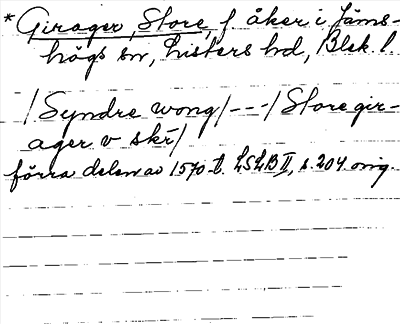 * Girager, Store, f åker i Jäms-
högs sn, Listers hd, Blek. l.
/Syndre wong/---/Store gir-
ager v skr̄/
förra delen av 1570-t. LSLB II, s. 204 orig.